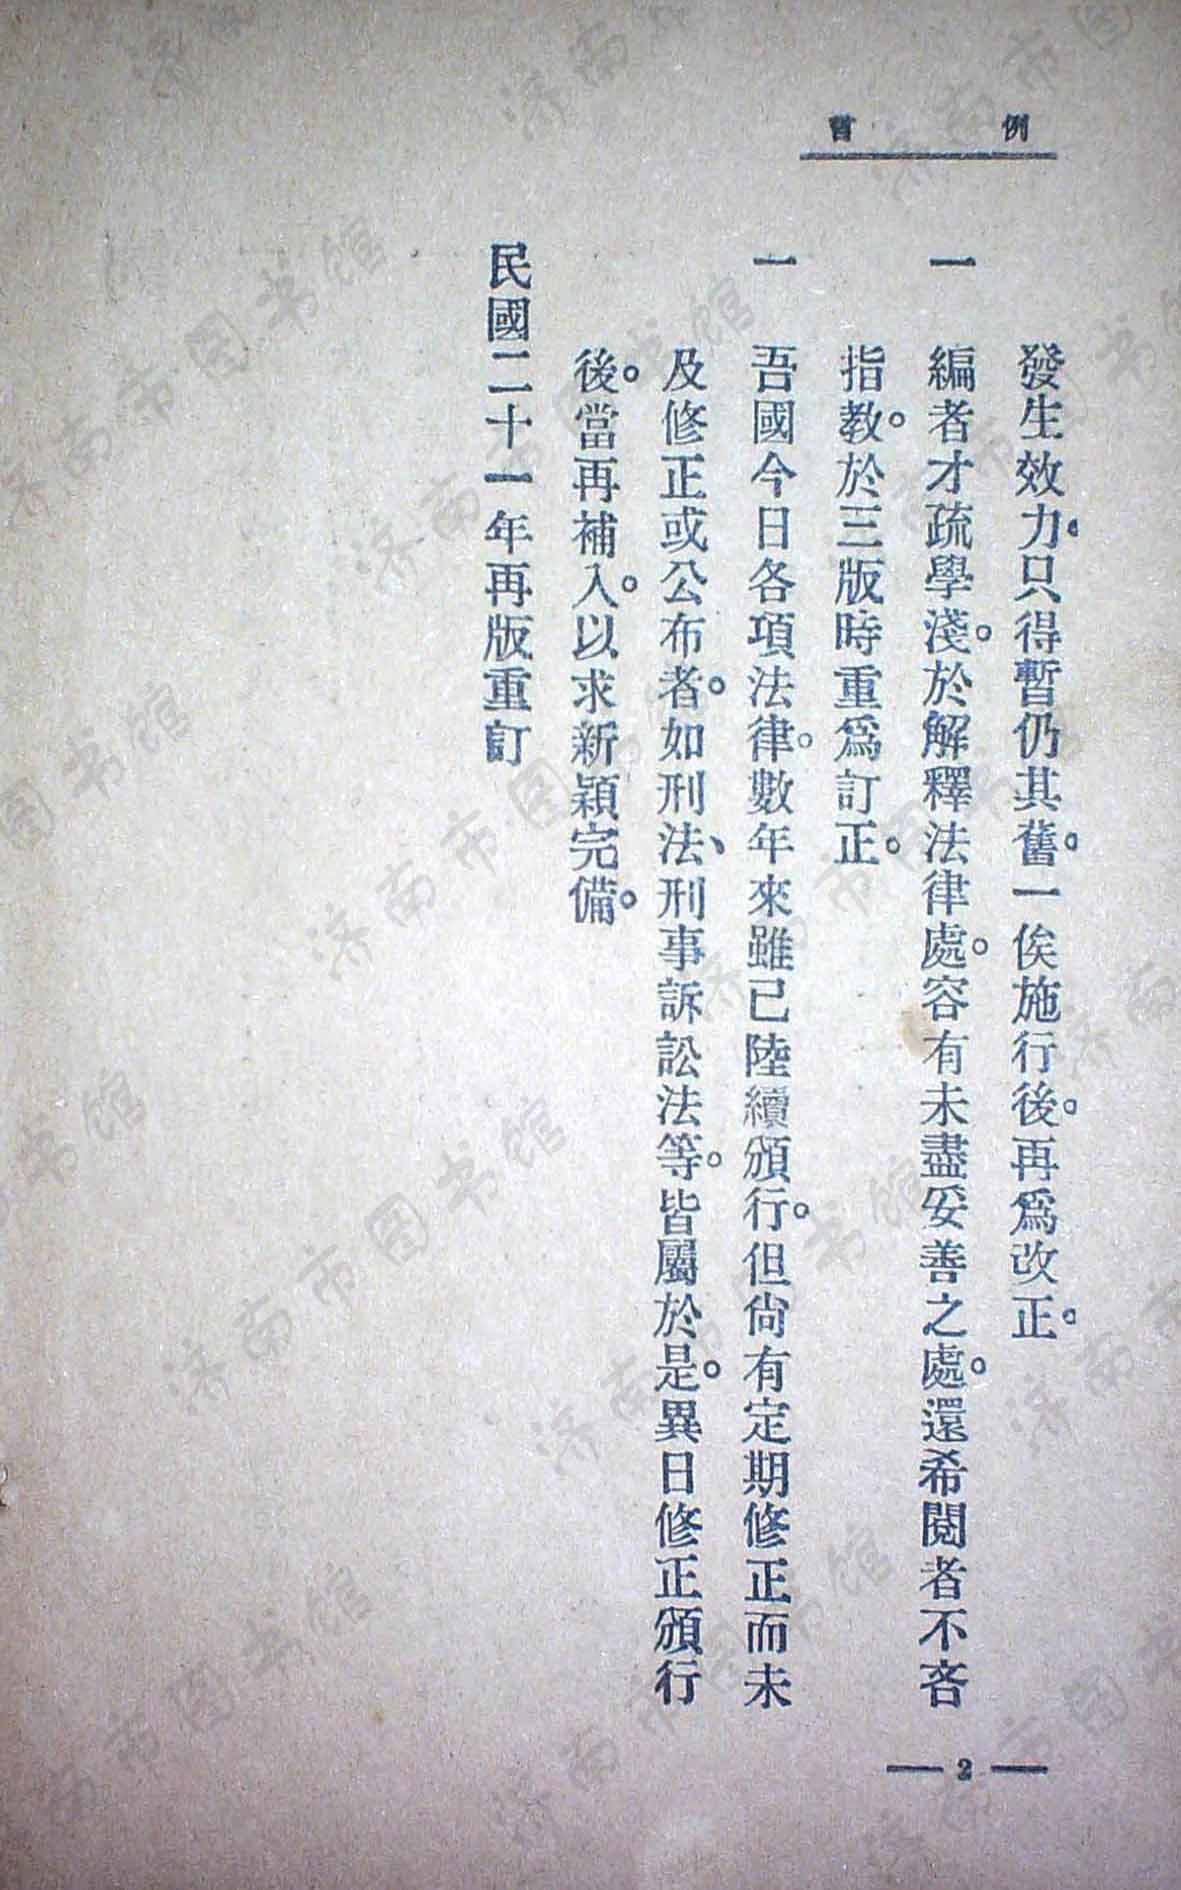 例言
發生效力。只得暫仍其舊。一俟施行後。再爲改正。
一　編者才疏學淺。於解釋法律處。容有未盡妥善之處。還希閱者不吝
指教。於三版時重爲訂正。
一　吾國今日各項法律。數年來雖已陸續頒行。但尙有定期修正而未
及修正或公布者。如刑法、刑事訴訟法等。皆屬於是。異日修正頒行
後。當再補入。以求新穎完備。
民國二十一年再版重訂
— 2 —
济南市图书馆